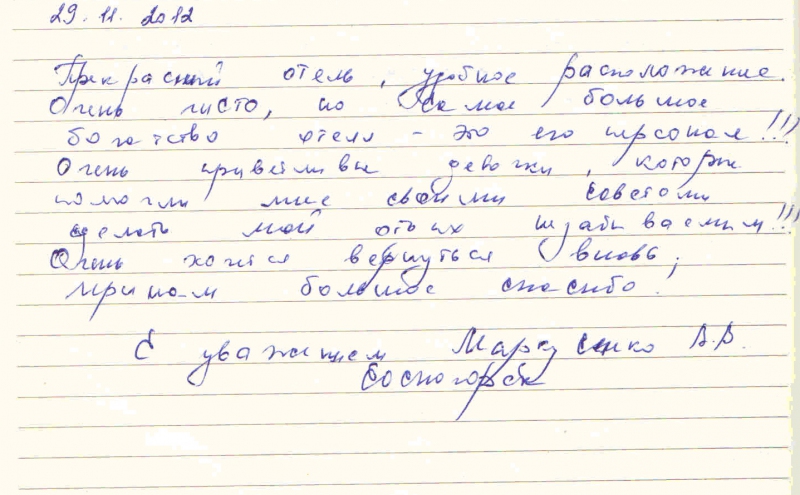 29.11.2012
Прекрасный отель, удобное расположение.
Очень чисто, но самое большое
богатство отеля - это его персонал!!!
Очень приветливые девочки, которые
помогли мне своими советами
сделать мой отдых незабываемым!!!
Очень хочется вернуться вновь,
большое спасибо!
С уважением В.В.
Сосногорск